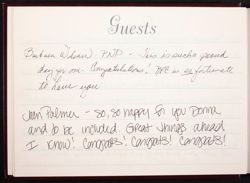 Guests
Barbara Wilson PNP - This is such a proud
day for one. Congratulations! is so fortunate
to have you
Jean Palmer - So, so happy for you Donna
and to be included. Great things ahead
I know! Congrats! Congrats! Congrats!